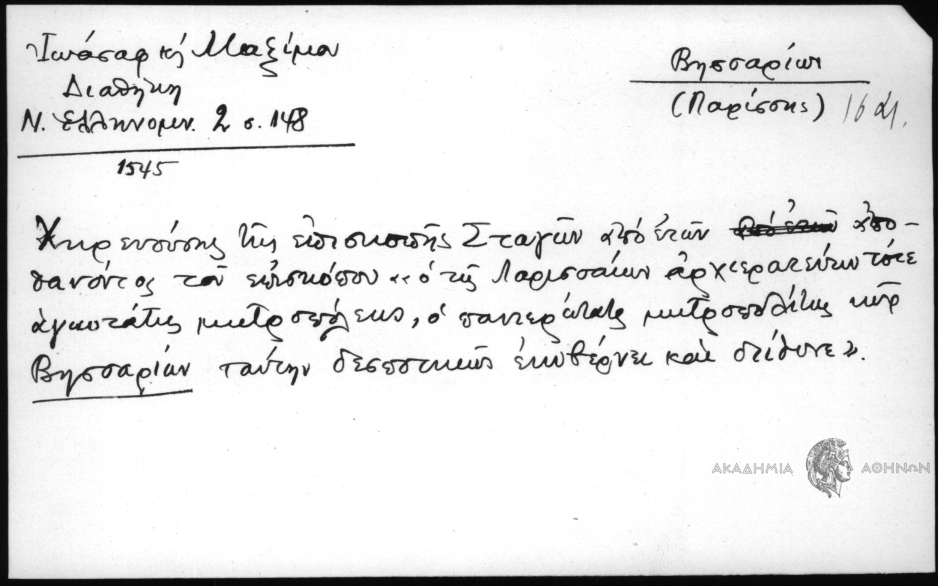 Ἰωάσαφ καὶ Μαξίμου
Διαθήκη
Ν. Ἑλληνομν. 2 σ. 148
1545
Βησσαρίων
(Λαρίσσης) 16 αἰ.
Χηρευούσης τῆς ἐπισκοπῆς Σταγῶν ἀπὸ ἐτῶν ἀπο-
θανόντος τοῦ ἐπισκόπου «ὁ τῆς Λαρισσαίων ἀρχιερατεύων τότε
ἁγιωτάτης μητροπόλεως, ὁ πανιερώτατος μητροπολίτης κῦρ
Βησσαρίων ταύτην δεσποτικῶς ἐκυβέρνει καὶ διίθυνε».
ΑΚΑΔΗΜΙΑ ΑΘΗΝΩΝ